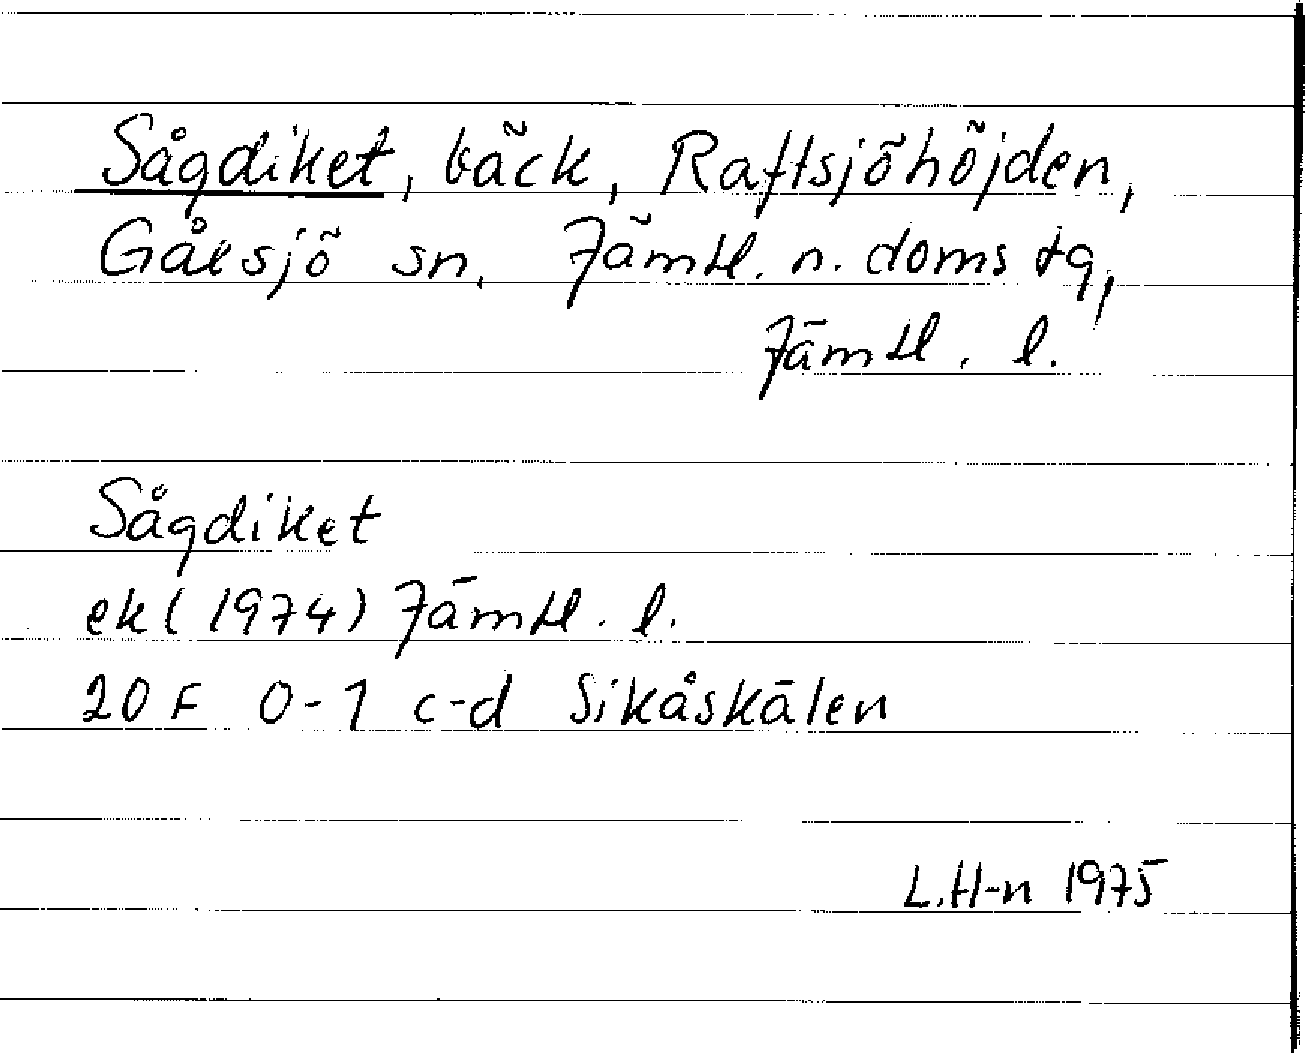 Sågdiket, bäck, Raftsjöhöjden,
Gåxsjö sn, Jämtl. n. doms tg,
Jämtl. l.
Sågdiket
ek (1974) Jämtl. l.
20 F 0-1 c-d Sikåskälen
L.H-n 1975